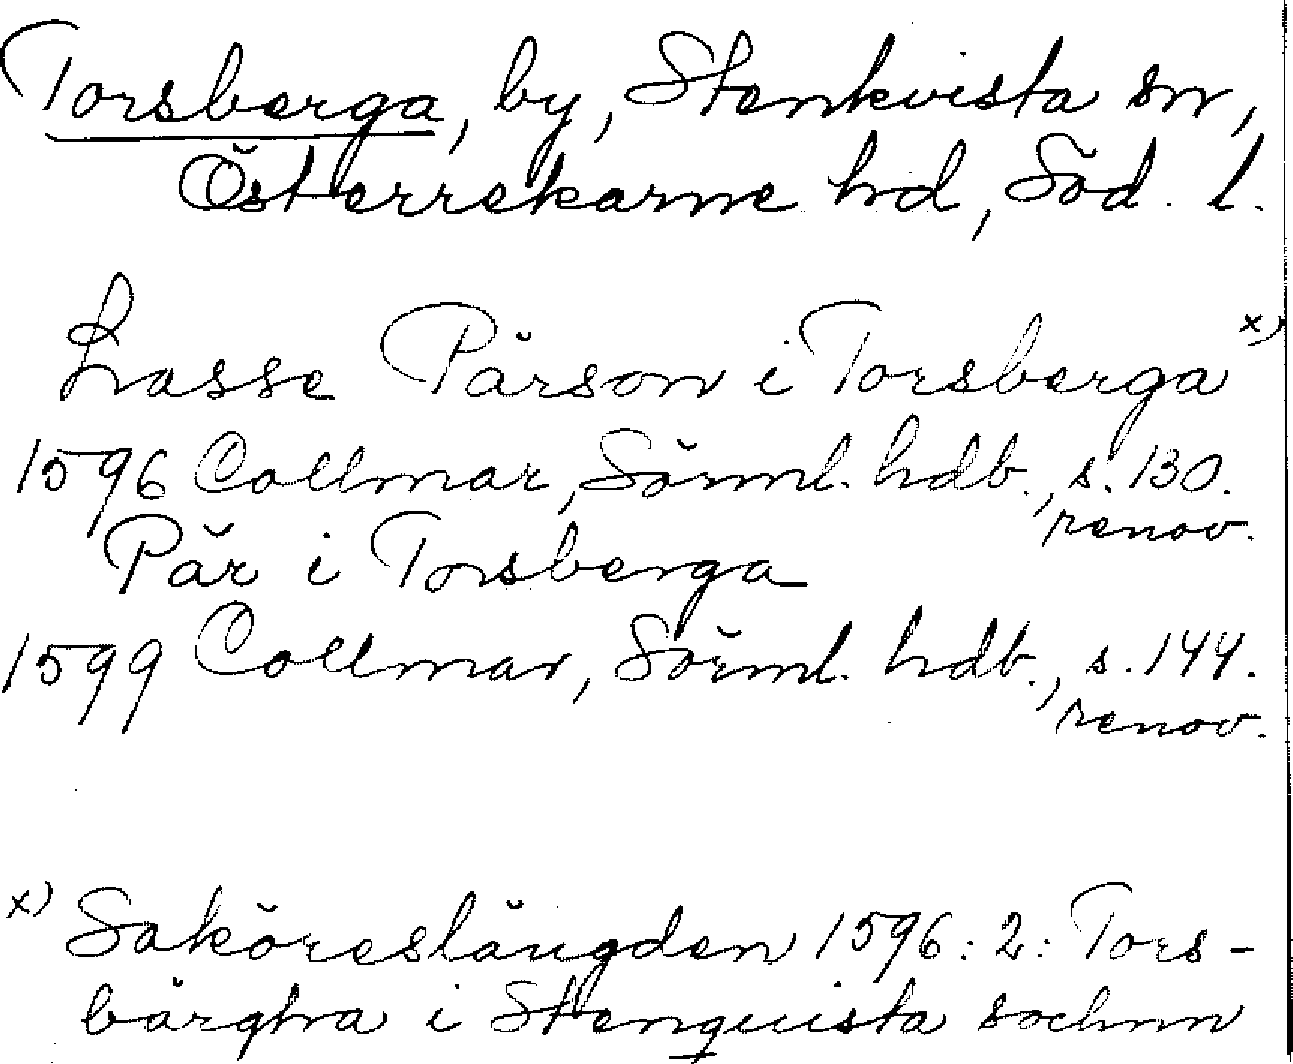 Torsberga, by, Stenkvista sn,
Österrekarne hd, Söd. l.
Lasse Pärson i Torsberga x)
1596 Collmar, Sörml. hdb., s. 130.
renov.
Pär i Torsberga
1599 Collmar, Sörml. hdb., s. 144.
renov.
x) Saköreslängden 1596: 2: Tors-
bärgha i Stenquista sochnn